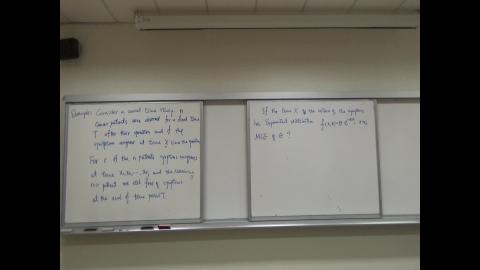 Example: Consider a cancer time study. n
cancer patients are observed for a fixed time
T after their operation and if the
symptoms reappear at time X since the operation
For r of the n patients symptoms reappears
at time x1, x2, ..., xr and the remaining
n-r patient are still free of symptoms
at the end of time point T.
If the time X of the return of the symptoms
has Exponential distribution f(x,θ)=θe^{-θx}, x>0
MLE of θ ?